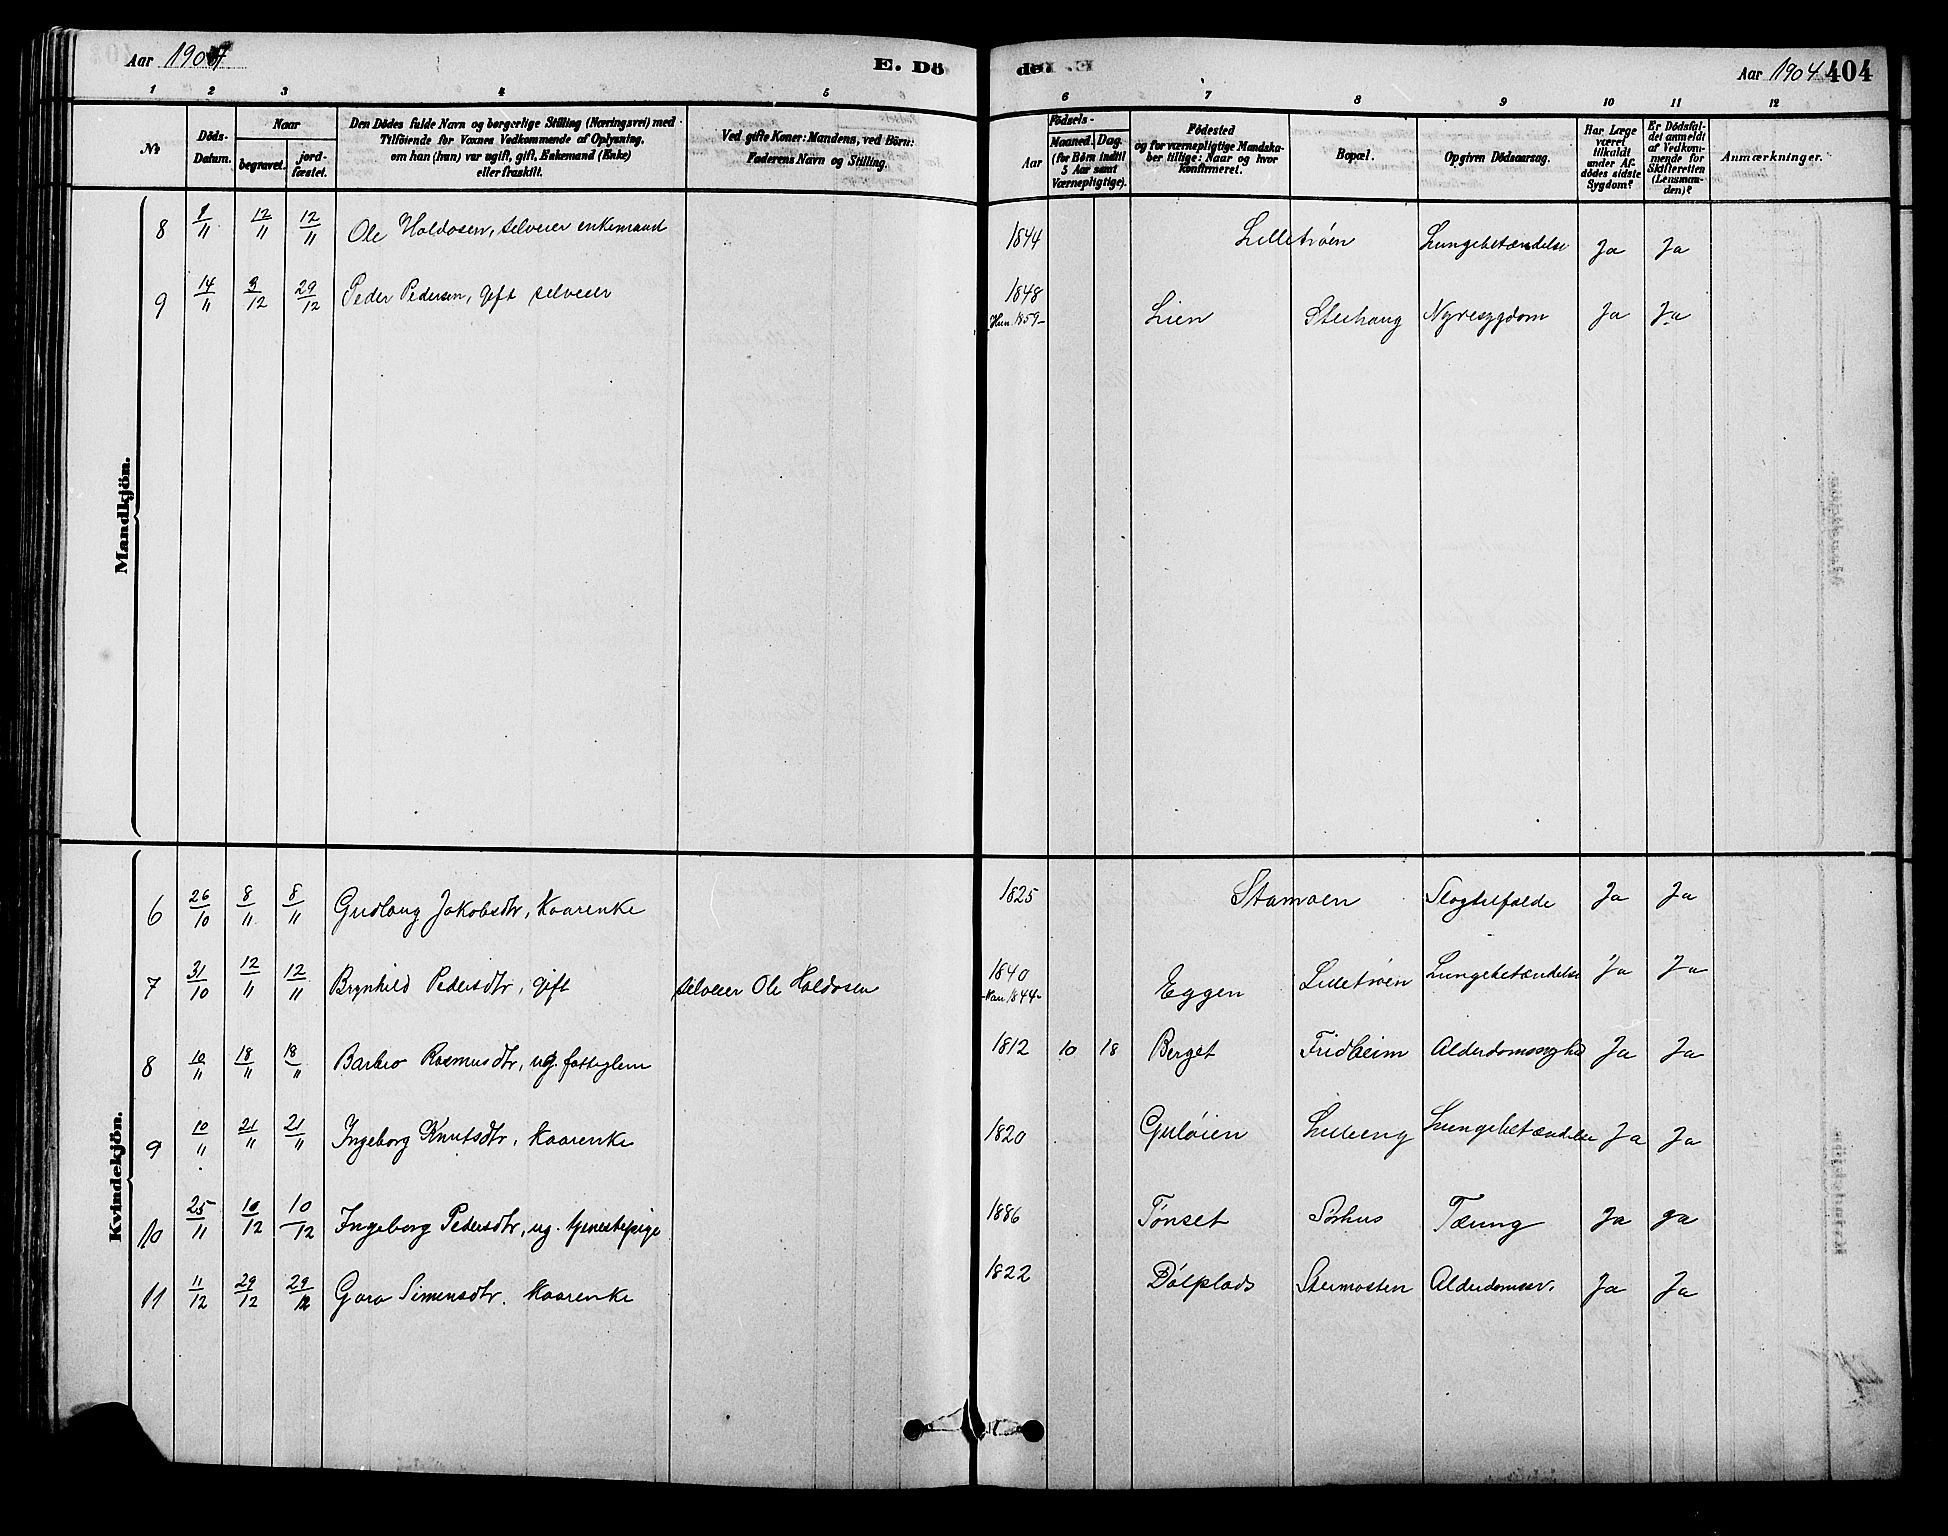 Aar 1904 E. Dö de. Aar 1904 404
1 2 3 4 5 6 7 8 9 10 11 12
№ Döds-Datum. Naar begravet. jordfæstet. Den Dödes fulde Navn og borgerlige Stilling (Næringsvei) med Tilföiende for Voxnes Vedkommende af Oplysning, om han (hun) var ugift, gift, Enkemand (Enke) eller fraskilt. Ved gifte Koner: Mandens, ved Börn: Faderens Navn og Stilling. Födsels- Aar Maaned. Dag. (for Börn indtil 5 Aar samt Værnepligtige). Födested og for værnepligtige Mandskaber tillige: Naar og hvor konfirmeret. Bopæl. Opgiven Dödsaarsag. Har Læge været tilkaldt under Afdödes sidste Sygdom? Er Dödsfaldet anmeldt af Vedkommende for Skifteretten (Lensmanden)? Anmærkninger.
Mandkjön.
8 9/11 12/11 12/11 Ole Haldosen, selveier enkemand 1844 Lilletröen Lungebetændelse Ja Ja
9 14/11 9/12 29/12 Peder Pedersen, gift selveier 1848 Hun 1859- Lien Steihaug Nyresygdom Ja Ja
Kvindekjön.
6 26/10 8/11 8/11 Gudlaug Jakobsdtr, kaarenke 1825 Stamoen Slagtilfælde Ja Ja
7 31/10 12/11 12/11 Brynhild Pedersdtr, gift selveier Ole Haldosen 1840 -Man 1844- Eggen Lilletröen Lungebetændelse Ja Ja
8 10/11 18/11 18/11 Barbro Rasmusdtr, ug. fattiglem 1812 10 18 Berget Fridheim Ja Ja
9 10/11 21/11 21/11 Ingeborg Knutsdtr, kaarenke 1820 Gulöien Lilleeng Lungebetændelse Ja Ja
10 25/11 10/12 10/12 Ingeborg Pedersdtr, ug. tjenestepige 1886 Tönset Sörhus Tæring Ja ja
11 11/12 29/12 29/12 Goro Simensdtr. kaarenke 1822 Dölplads Steimosten Alderdomssv. Ja Ja